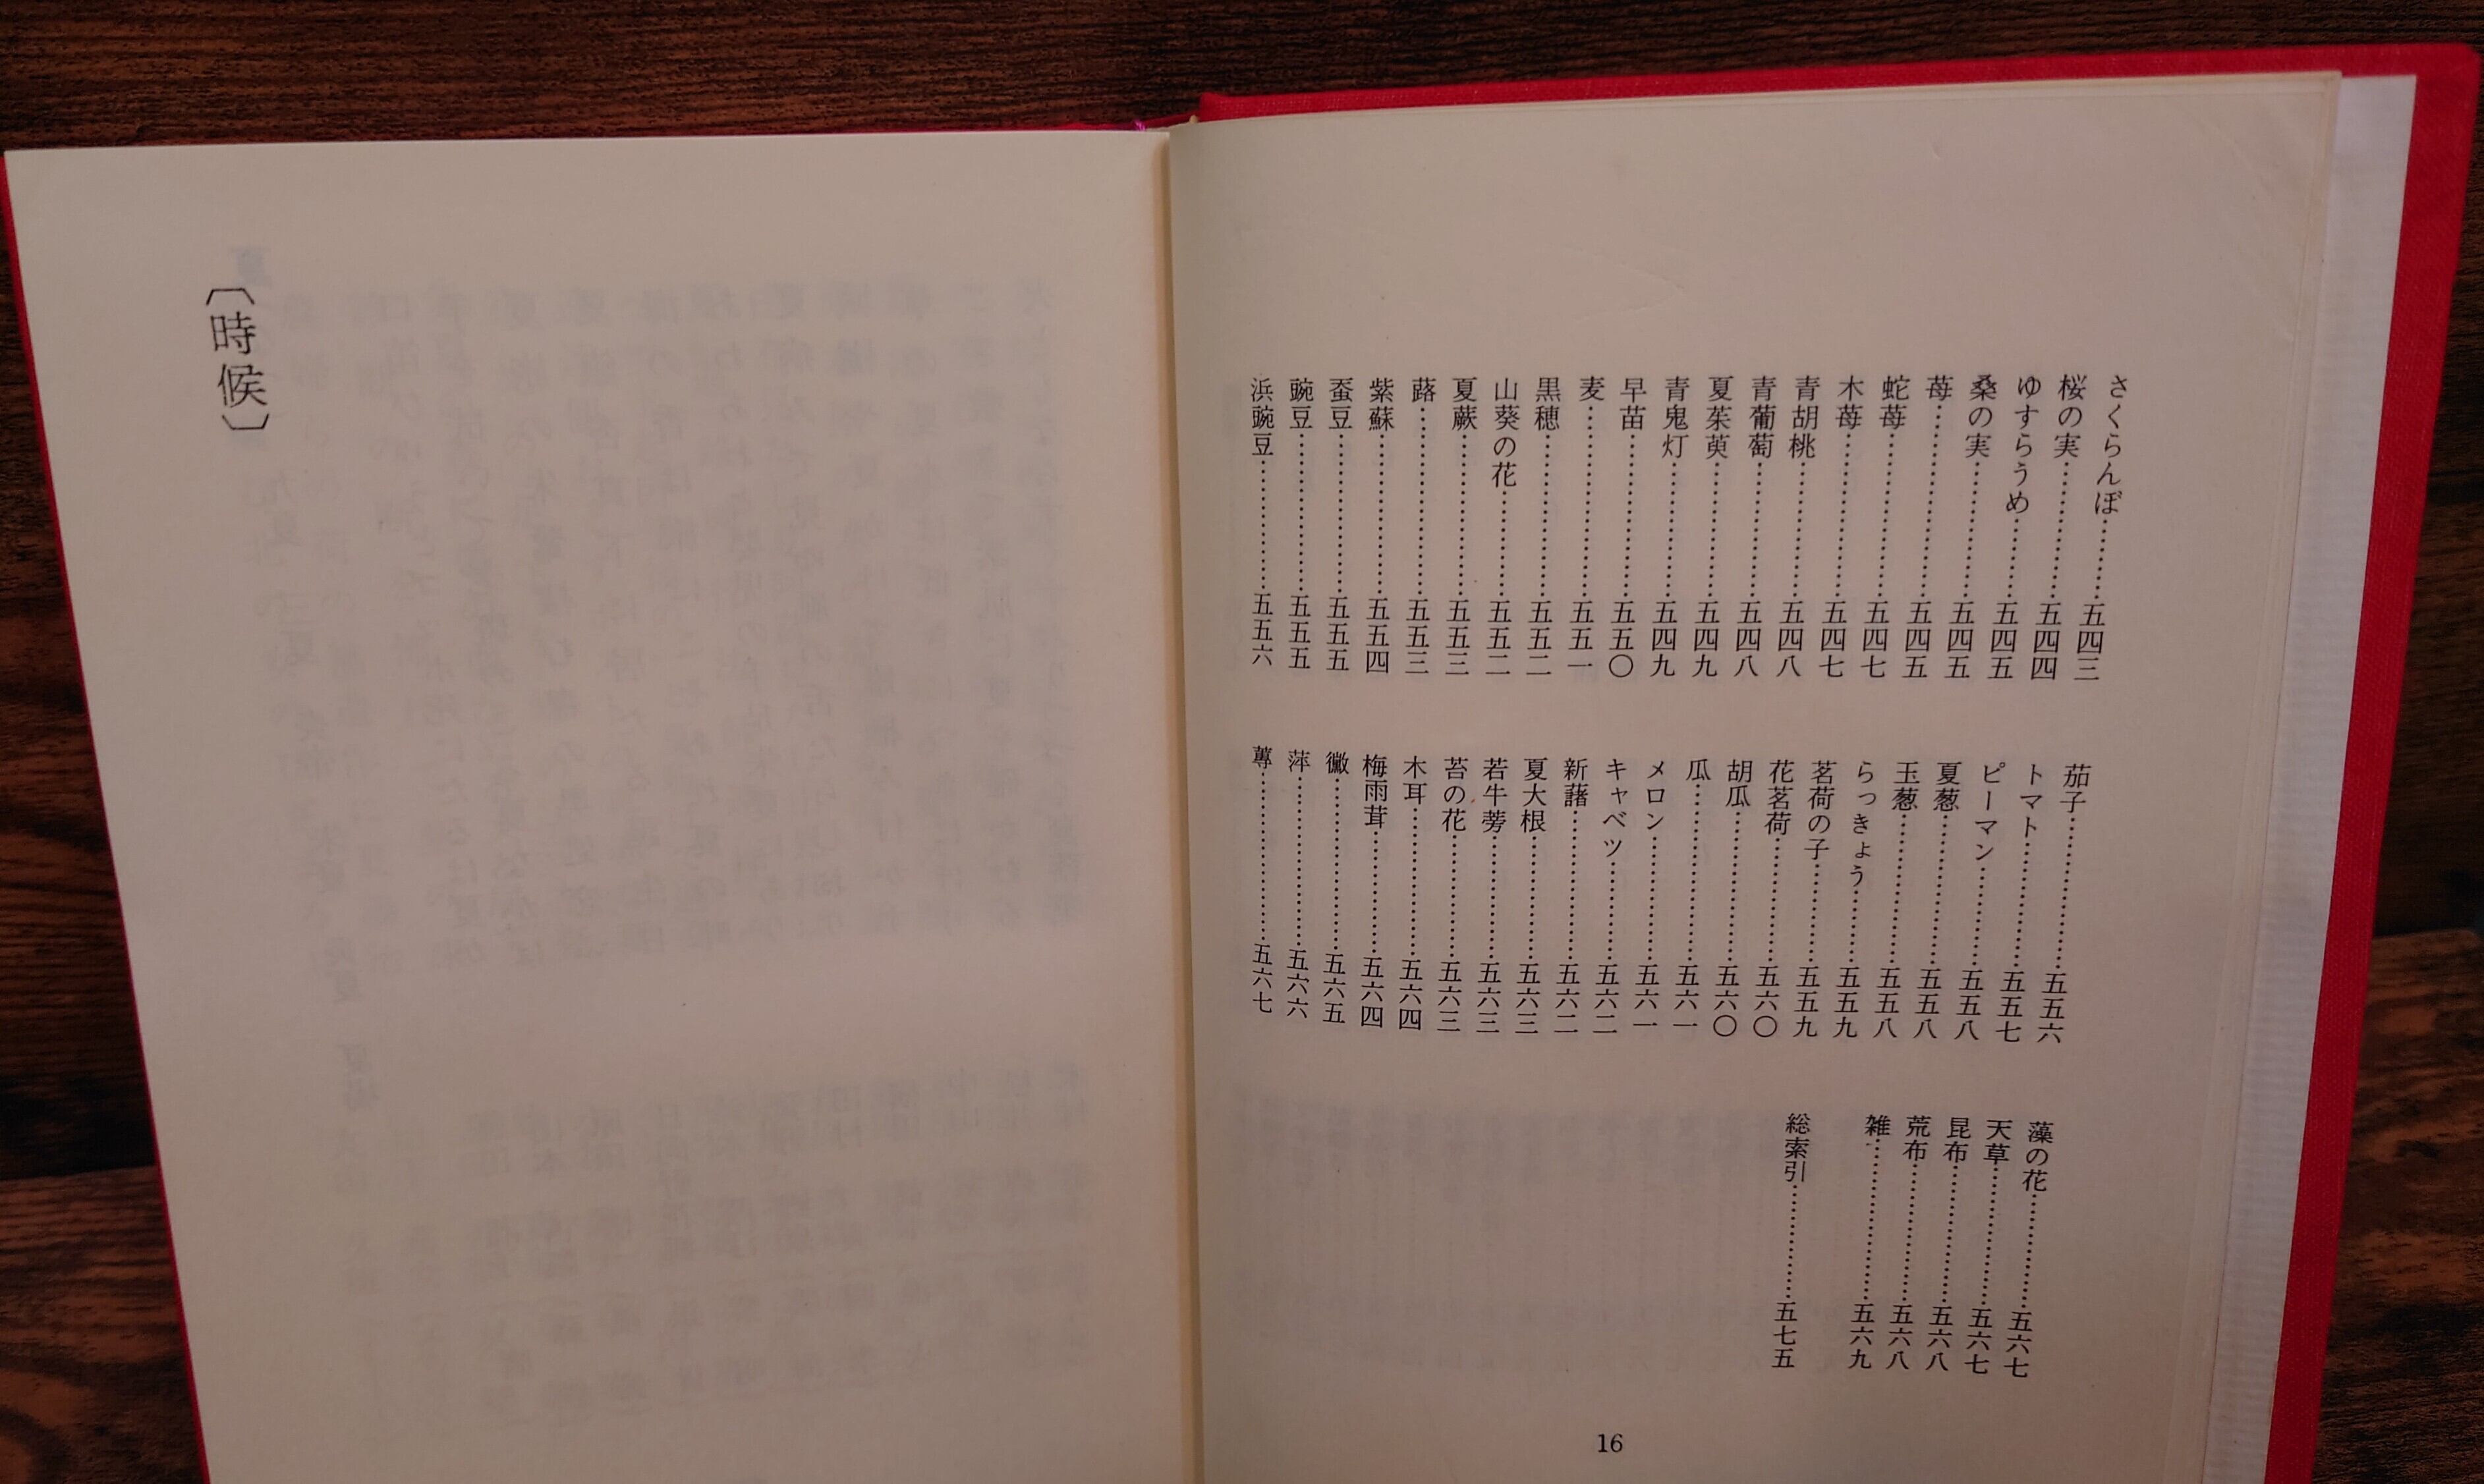 さくらんぼ…………五四三
桜の実…………五四四
ゆすらうめ…………五四五
桑の実…………五四五
苺…………五四五
蛇苺…………五四七
木苺…………五四七
青胡桃…………五四八
青葡萄…………五四八
夏茱萸…………五四九
青鬼灯…………五四九
早苗…………五五〇
麦…………五五一
黒穂…………五五二
山葵の花…………五五二
夏蕨…………五五三
蕗…………五五三
紫蘇…………五五四
蚕豆…………五五五
豌豆…………五五五
浜豌豆…………五五六
茄子…………五五六
トマト…………五五七
ピーマン…………五五八
夏葱…………五五八
玉葱…………五五八
らっきょう…………五五九
茗荷の子…………五五九
花茗荷…………五六〇
胡瓜…………五六〇
瓜…………五六一
メロン…………五六一
キャベツ…………五六二
新藷…………五六二
夏大根…………五六三
若牛蒡…………五六三
苔の花…………五六三
木耳…………五六四
梅雨茸…………五六四
黴…………五六五
萍…………五六六
蓴…………五六七
藻の花…………五六七
天草…………五六七
昆布…………五六八
荒布…………五六八
雑…………五六九
総索引…………五七五
16
〔時候〕